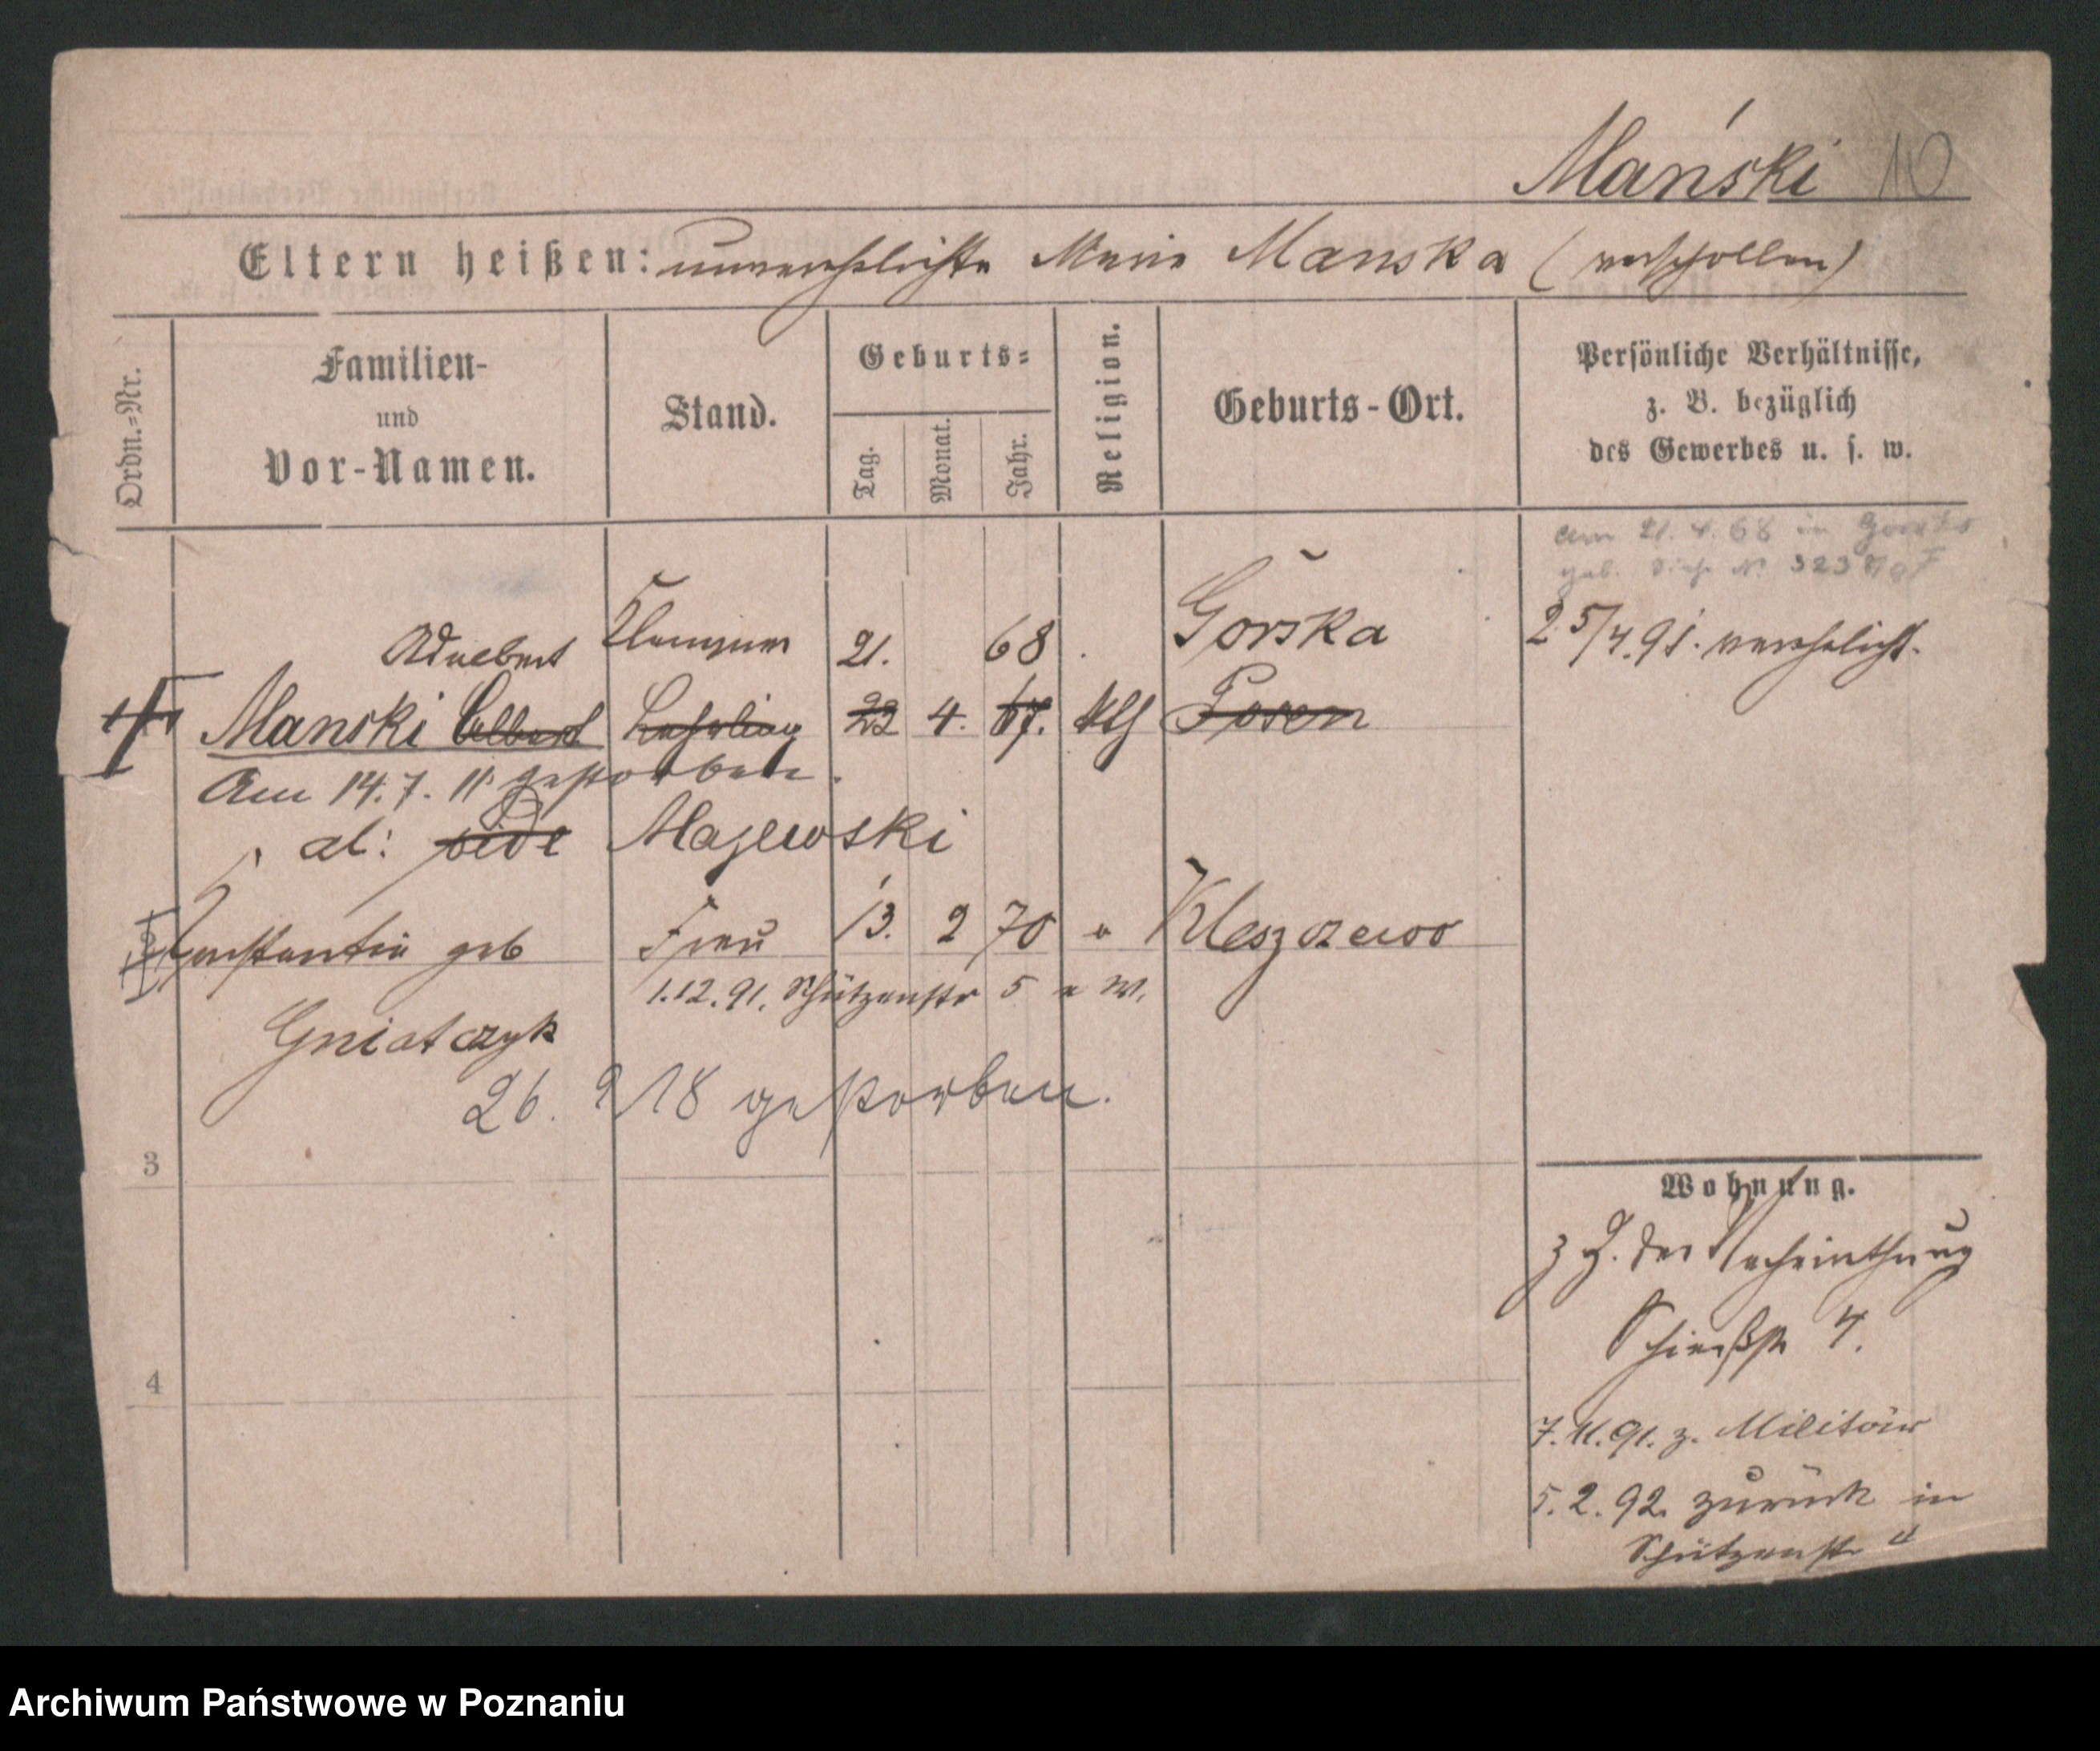 Mański 10
Eltern heißen: unverehelichte Marie Manska (verschollen)
Ordn.=Nr.
Familien-
und
Vor-Namen.
Stand.
Geburts=
Tag.
Monat.
Jahr.
Religion.
Geburts-Ort.
Persönliche Verhältnisse,
z. B. bezüglich
des Gewerbes u. s. w.
am 21. 4. 68 in
geb. Siehe № 323
Adalbert Klempner 21. 68 Gorska 25/4.91. verehelicht.
Manski Albert Lehrling 23 4. 67. kth Posen
Am 14.7. 11 gestorben.
al: vide Majewski
Constantia geb Frau 13. 2 70 " Kleszczewo
1.12.91. Schützenstr 5 a W.
Gniatczyk
26. 9 18 gestorben.
3
Wohnung.
z Z. der Verheirathung
Schießstr 4.
4
7.11.91. z. Militär
5.2.92. zurück in
Schützenstr "
Archiwum Państwowe w Poznaniu